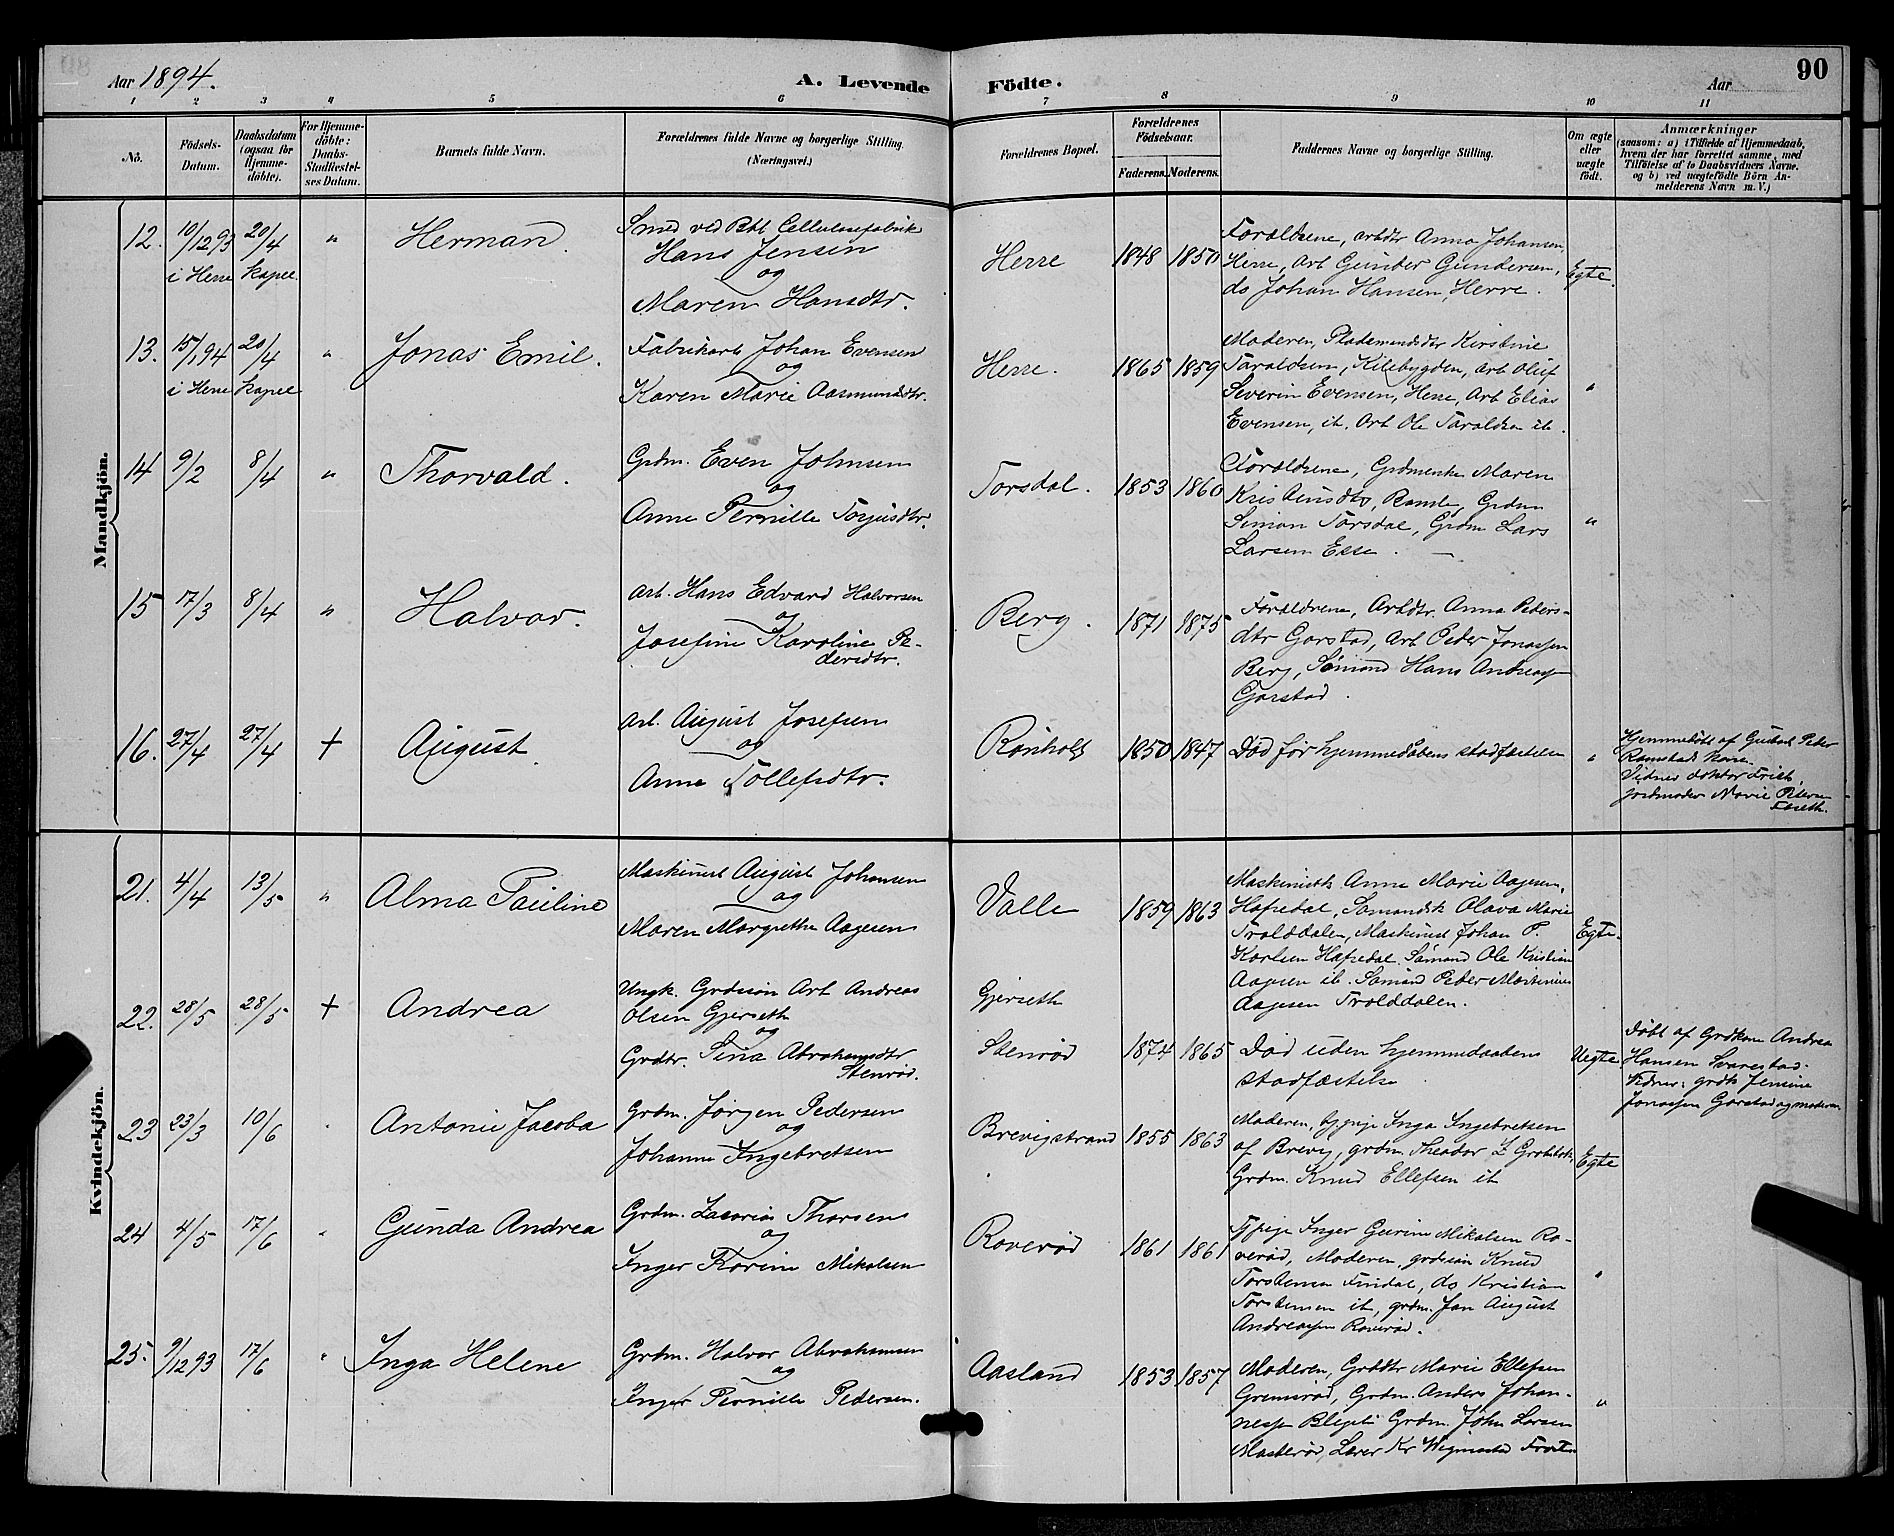 Aar 1894.
A. Levende Födte.
Aar
90
1 2 3 4 5 6 7 8 9 10 11
No.
Födsels-
Datum.
Daabsdatum
(ogsaa for
Hjemme-
döbte).
For Hjemme-
döbte:
Daabs-
Stadfæstel-
ses Datum.
Barnets fulde Navn.
Forældrenes fulde Navne og borgerlige Stilling.
(Næringsvei.)
Forældrenes Bopæl.
Forældrenes
Födselsaar.
Faderens. Moderens.
Faddernes Navne og borgerlige Stilling.
Om ægte
eller
uægte
födt.
Anmærkninger
(saasom: a) i Tilfælde af Hjemmedaab,
hvem der har forrettet samme, med
Tilföielse af to Daabsvidners Navne.
og b) ved uægtefödte Börn An-
melderens Navn m.V.)
Mandkjön.
12. 10/12 93 20/4 " Herman.
i Herre kapel
Smed ved Bbl Cellulosefabrik
Hans Jensen
og
Maren Hansdtr.
Herre 1848 1850
Forældrene, arbdtr Anna Johansen,
Herre, Arb Gunder Gundersen,
do Johan Hansen, Herre.
Egte.
13. 15/1 94 20/4 " Jonas Emil.
i Herre kapel
Fabrikarb Johan Evensen
og
Karen Marie Aasmundsdtr.
Herre. 1865 1859
Moderen, Pladsmandsdtr Kirstine
Taraldsen, Kilebygden, Arb Oluf
Severin Evensen, Herre, Arb Elias
Evensen, ib. Arb Ole Taraldsen ib.
"
14 9/2 8/4 " Thorvald.
Grdm. Even Johnsen
og
Anne Pernille Torjusdtr.
Torsdal. 1853 1860
Forældrene, Grdmenke Maren
Kristensdtr, Bamle, Grdm
Simon Torsdal, Grdm Lars
Larsen Esse.
"
15 17/3 8/4 " Halvor.
Arb. Hans Edvard Halvorsen
og
Josefine Karoline Pe-
dersdtr.
Berg. 1871 1875
Forældrene, Arbdtr. Anna Peders-
dtr Garstad, Arb Peder Jonassen
Berg, Sömand Hans Andreas
Garstad.
16. 27/4 27/4 + August.
Arb. August Josefsen
og
Anne Tollefsdtr.
Rönholt 1850 1847
Död før hjemmedåbens stadfæstelse
"
Hjemmedöbt af Gustav Peder
Ramstad
Vidner doktor
jordmoder Marie Petersen
Kvindekjön.
21. 4/4 13/5 " Alma Pauline
Maskinist August Johansen
og
Maren Margrethe Aagesen
Valle 1859 1863
Maskinistk Anne Marie Aagesen,
Hafsedal, Sömandsk Olava Marie
Trolddalen, Maskinist Johan P.
Karlsen Hafsedal, Sömand Ole Kristian
Aagesen ib. Sömand Peder Martinius
Aagesen Trolddalen.
Egte.
22. 28/5 28/5 + Andrea
Ungk. Grdssön Arb Andreas
Olsen Gjerseth
og
Grdtr. Sina Abrahamsdtr
Stenröd.
Gjerseth
Stenröd 1874 1865
Död uden hjemmedaabens
stadfæstelse
Uegte
Döbt af Grdkone Andrea
Hansen Svarestad.
Vidner: grdk Jensine
Jonassen Garstad og moderen
23 23/3 10/6 " Antonie Jacoba
Grdm. Jörgen Pedersen
og
Johanne Ingebretsen
Brevigstrand 1855 1863
Moderen, tj.pige Inga Ingebretsen
af Brevig, grdm Theodor
Grdm. Knud Ellefsen ib
Egte
24 4/5 17/6 " Gunda Andrea
Grdm. Zacarias Thorsen
og
Inger Karine Mikalsen
Roverød 1861 1861
Tj.pige Inger Gurine Mikalsen Ro-
veröd, Moderen, grdssön Knud
Torstensen Findal, do Kristian
Torstensen ib, grdm. Jan August
Andreassen Roveröd.
"
25. 9/12 93 17/6 " Inga Helene
Grdm. Halvor Abrahamsen
og
Inger Pernille Pedersen.
Aasland 1853 1857
Moderen, Grddtr Marie Ellefsen
Gremsröd, Grdm. Anders Johan-
nessen Grdm. John Larsen
Lærer Kr Wigmostad
"